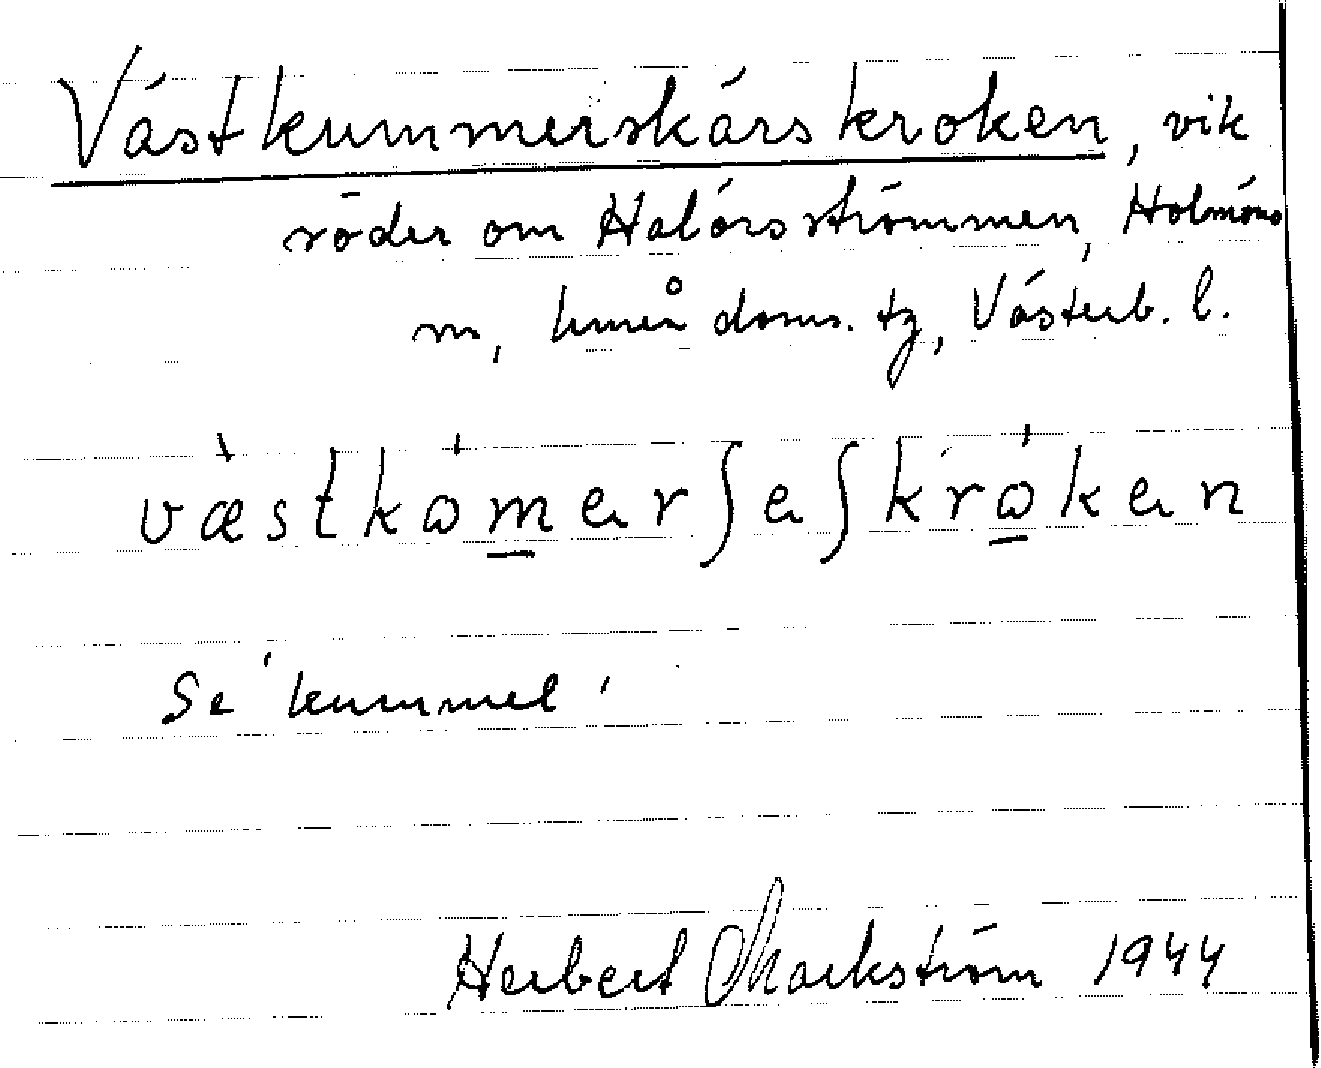 Västkummerskärskroken, vik
söder om Halörsströmmen, Holmöns
sn, Umeå doms. tg, Västerb. l.
væ̀stkȯmerʃeʃkrȯken
Se 'kummel'
Herbert Markström 1944